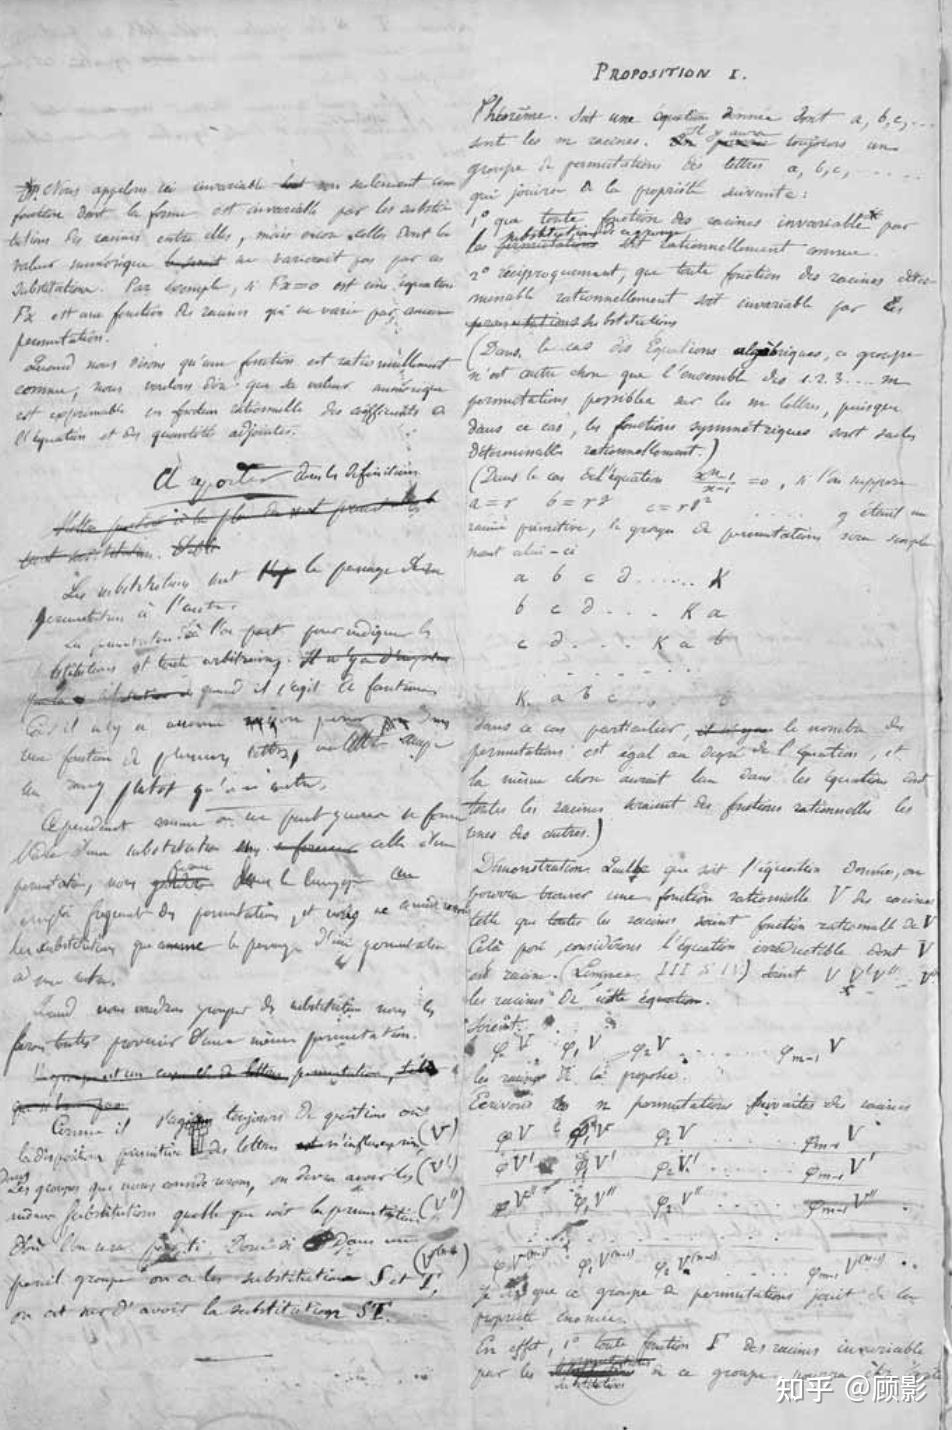 PROPOSITION I.
Théorème. Soit une équation donnée dont a, b, c, ...
sont les m racines. Il y aura toujours un
groupe de permutations des lettres a, b, c, .....
qui jouira de la propriété suivante:
1° que toute fonction des racines invariable* par
les substitutions de ce groupe soit rationnellement connue.
2° réciproquement, que toute fonction des racines déter-
minable rationnellement soit invariable par les
substitutions
(Dans le cas des Equations algébriques, ce groupe
n'est autre chose que l'ensemble des 1.2.3....m
permutations possibles sur les m lettres, puisque
dans ce cas, les fonctions symmétriques sont seules
déterminables rationnellement.)
(Dans le cas de l'équation =0, si l'on suppose
a=r b=r^g c=r^{g^2} ..... g étant une
racine primitive, le groupe de permutations sera simple-
ment celui-ci
a b c d ...... K
b c d .... K a
c d ..... K a b
.......
K a b c ....
dans ce cas particulier, le nombre des
permutations est égal au degré de l'équation, et
la même chose aurait lieu dans les équations dont
toutes les racines seraient des fonctions rationnelles les
unes des autres.)
Démonstration. Quelle que soit l'équation donnée, on
pourra trouver une fonction rationnelle V des racines
telle que toutes les racines soient fonction rationnelle de V
Cela posé, considérons l'équation irréductible dont V
est racine. (Lemmes III & IV) Soient V V' V'' ...
les racines de cette équation.
Soient
φV φ₁V φ₂V ...... φm-1 V
les racines de la proposée.
Ecrivons les n permutations suivantes des racines
(V) φV φ₁V φ₂V ...... φm-1 V
(V') φV' φ₁V' φ₂V' ...... φm-1 V'
(V'') φV'' φ₁V'' φ₂V'' ...... φm-1 V''
.......
(V^(n-1)) φV^(n-1) φ₁V^(n-1) φ₂V^(n-1) ...... φm-1 V^(n-1)
je dis que ce groupe de permutations jouit de la
propriété énoncée.
En effet, 1° toute fonction F des racines invariable
par les substitutions de ce groupe pourra être
Nous appelons ici invariable non seulement une
fonction dont la forme est invariable par les substitu-
tions des racines entre elles, mais encore celles dont la
valeur numérique ne varierait pas par ces
substitutions. Par exemple, si Fx=0 est une équation
Fx est une fonction des racines qui ne varie par aucune
permutation.
Quand nous disons qu'une fonction est rationnellement
connue, nous voulons dire que sa valeur numérique
est exprimable en fonction rationnelle des coëfficients de
l'équation et des quantités adjointes.
A reporter dans les définitions.
Les substitutions sont le passage d'une
permutation à l'autre.
La permutation d'où l'on part pour indiquer les
substitutions est toute arbitraire, quand il s'agit de fonctions
Car il n'y a aucune raison pour que dans
une fonction de plusieurs lettres, une lettre occupe
un rang plutot qu'un autre.
Cependant comme on ne peut guères se former
l'idée d'une substitution sans celle d'une
permutation, nous ferons dans le langage un
emploi fréquent des permutations, et nous ne considérerons
les substitutions que comme le passage d'une permutation
à une autre.
Quand nous voudrons grouper des substitutions nous les
ferons toutes provenir d'une même permutation.
Comme il s'agit toujours de questions où
la disposition primitive des lettres n'influe en rien,
Dans les groupes que nous considérerons, on devra avoir les
mêmes substitutions quelle que soit la permutation
d'où l'on sera parti. Donc si dans un
pareil groupe on a les substitutions S et T,
on est sûr d'avoir la substitution ST.
知乎 @顾影